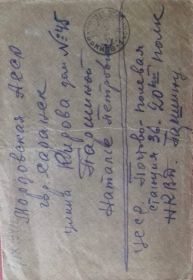 Мордовская АССР
гор. Саранск
улица Кирова дом № 45
Паршиной
Наталье Петровне
УССР Почтово-полевая
станция 36. 20ый полк
НКВД. Паршину